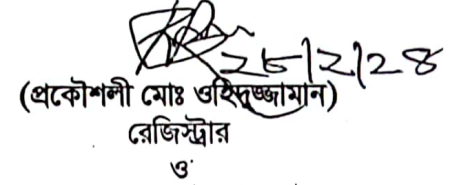 ২৮/২/২৪
(প্রকৌশলী মোঃ ওহিদুজ্জামান)
রেজিস্ট্রার
ও